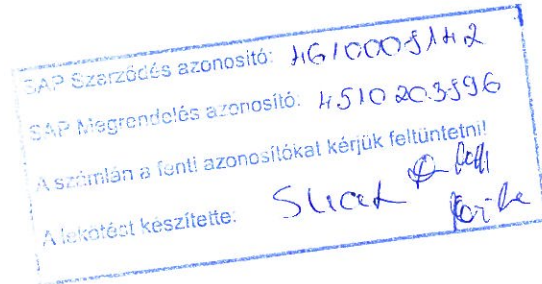 SAP Szerződés azonosító: 4610005142
SAP Megrendelés azonosító: 4510203596
A számlán a fenti azonosítókat kérjük feltüntetni!
A lekötést készítette: